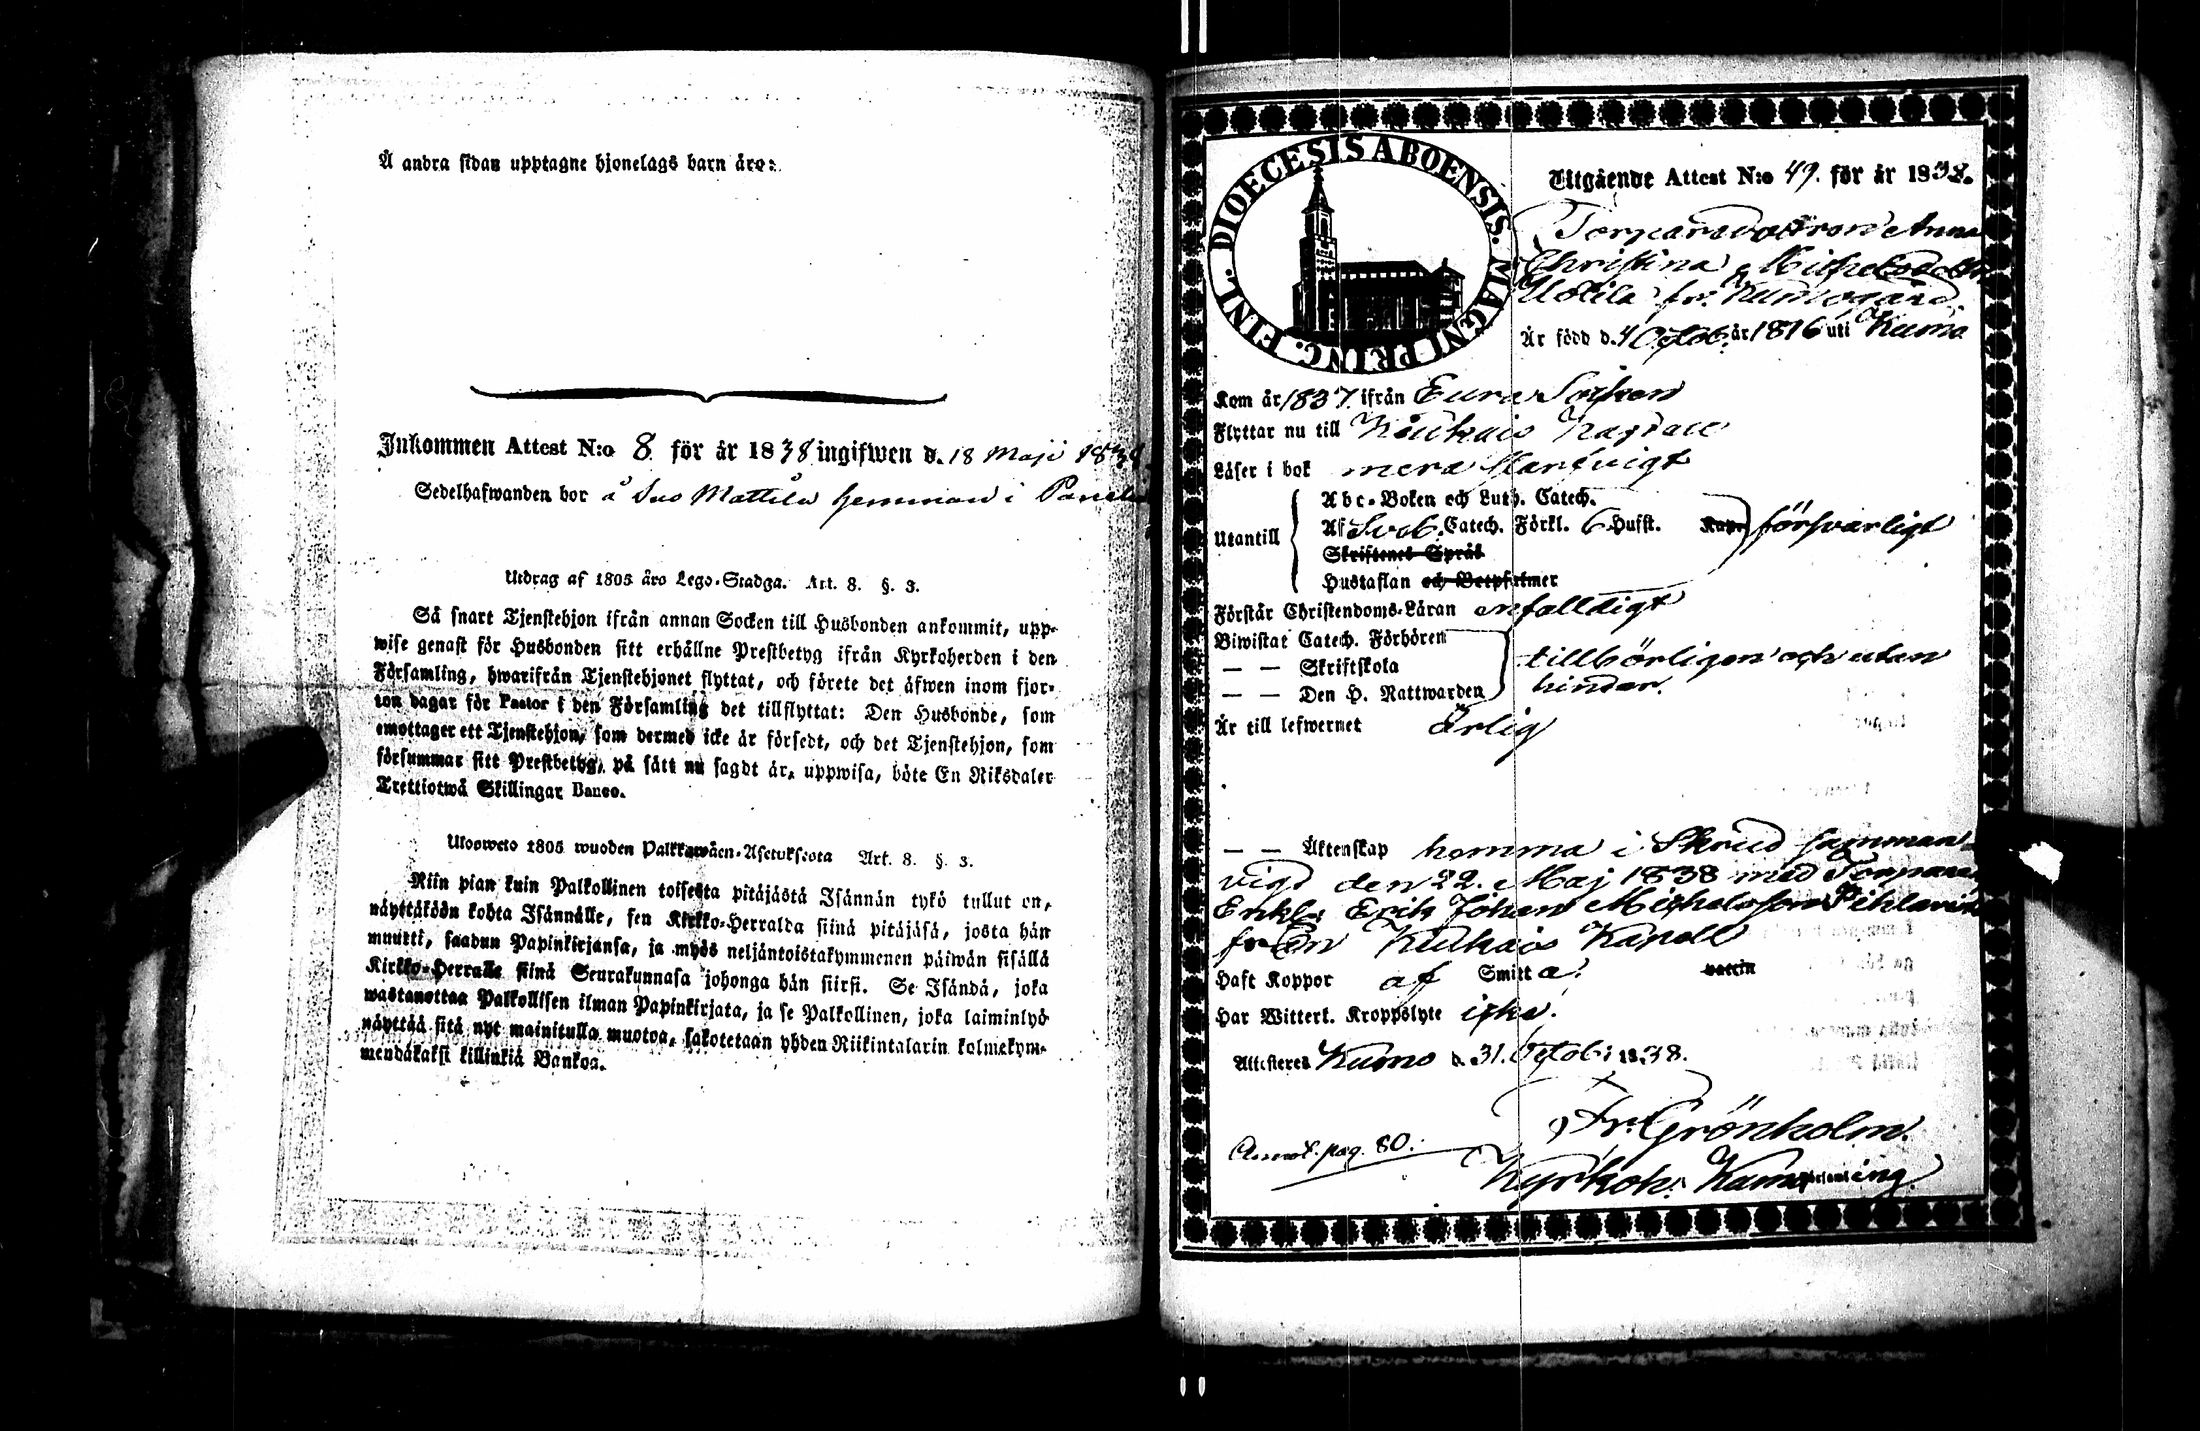 Å andra sidan upptagne hjonelags barn äro:
Inkommen Attest N:o 8 för år 1838 ingifwen d. 18 Maji 1838
Sedelhafwanden bor å Sus Mattila hemman i Panelia
Utdrag af 1805 års Lego-Stadga. Art. 8. §. 3.
Så snart Tjenstehjon ifrån annan Socken till Husbonden ankommit, upp-
wise genast för Husbonden sitt erhållne Prestbetyg ifrån Kyrkoherden i den
Församling, hwarifrån Tjenstehjonet flyttat, och förete det äfwen inom fjor-
ton dagar för Pastor i den Församling det tillflyttat: Den Husbonde, som
emottager ett Tjenstehjon, som dermed icke är försedt, och det Tjenstehjon, som
försummar sitt Prestbetyg, på sätt nu sagdt är, uppwisa, böte En Riksdaler
Trettiotwå Skillingar Banco.
Ulosweto 1805 wuoden Palkkawäen-Asetuksesta Art. 8. §. 3.
Niin pian kuin Palkollinen toisesta pitäjästä Isännän tykö tullut on,
näyttäköön kohta Isännälle, sen Kirkko-Herralda siinä pitäjäsä, josta hän
muutti, saadun Papinkirjansa, ja myös neljäntoistakymmenen päiwän sisällä
Kirkko-Herralle siinä Seurakunnasa johonga hän siirsi. Se Isändä, joka
wastanottaa Palkollisen ilman Papinkirjata, ja se Palkollinen, joka laiminlyö
näyttää sitä nyt mainitulla muotoa, sakotetaan yhden Riikintalarin kolmekym-
mendäkaksi killinkiä Bankoa.
DIOECESIS ABOENSIS. MAGNI PRINC. FINL.
Utgående Attest N:o 49. för år 1838.
Torpares Anna
Christina Michelsdotter
Uotila fr. Kumogård.
Är född d. 4 Octob. år 1816 uti Kumo
Kom år 1837. ifrån Eura Socken
Flyttar nu till Kiukais Kapell
Läser i bok mera färdigt
Utantill
Abc-Boken och Luth. Catech.
Af Sveb. Catech. Förkl. 6 Hufst. försvarligt
Skriftenes Språk
Hustaflan och Botpsalmer
Förstår Christendoms-Läran enfalldigt
Biwistat Catech. Förhören
— — Skriftskola tillbörligen och utan
— — Den H. Nattwarden hinder.
Är till lefwernet ärlig
— — Äktenskap hemma i Skrud samman-
vigd den 22. Maj 1838 med Torpare
Enkl. Erik Johan Michelsson Pihlaviita
från Kiukais Kapell
Haft Koppor af Smitta.
Har Witterl. Kroppslyte icke.
Attesteres Kumo d. 31. Octob: 1838.
Fr. Grönholm.
Annot. pag. 80.
Kyrkoh. Kumo Församling.